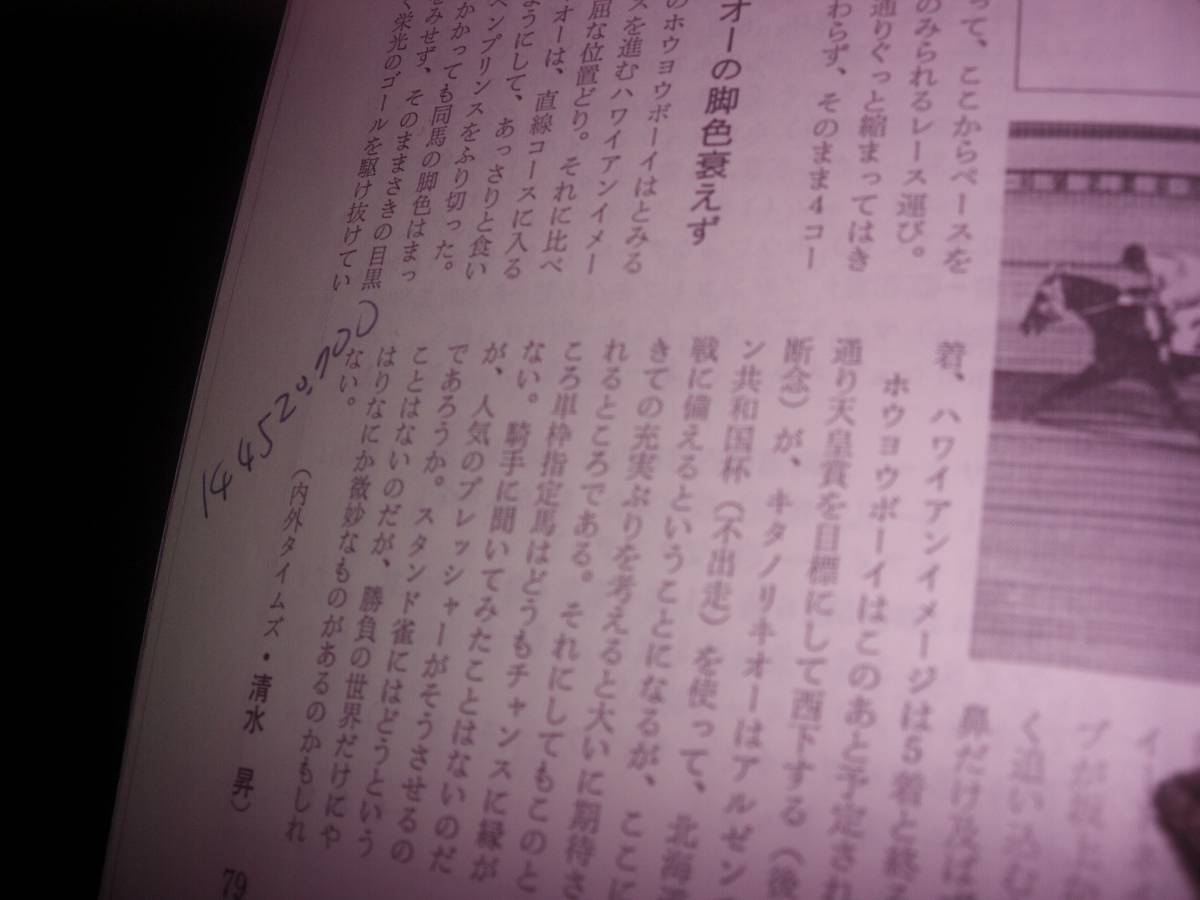 って、ここからペースを
のみられるレース運び。
通りぐっと縮まってはき
わらず、そのまま4コー
オーの脚色衰えず
のホウヨウボーイはとみる
スを進むハワイアンイメー
屈な位置どり。それに比べ
オーは、直線コースに入る
ようにして、あっさりと食い
ペンプリンスをふり切った。
かかっても同馬の脚色はまっ
をみせず、そのままさきの目黒
く栄光のゴールを駆け抜けてい
着、ハワイアンイメージは5着と終る
ホウヨウボーイはこのあと予定され
通り天皇賞を目標にして西下する（後
断念）が、キタノリキオーはアルゼン
ン共和国杯（不出走）を使って、北海道
戦に備えるということになるが、ここに
きての充実ぶりを考えると大いに期待さ
れるところである。それにしてもこのと
ころ単枠指定馬はどうもチャンスに縁が
ない。騎手に聞いてみたことはないのだ
が、人気のプレッシャーがそうさせるの
であろうか。スタンド雀にはどうという
ことはないのだが、勝負の世界だけにや
はりなにか微妙なものがあるのかもしれ
ない。
（内外タイムズ・清水 昇）
鼻だけ及ば
く追い込む
プが坂上か
79